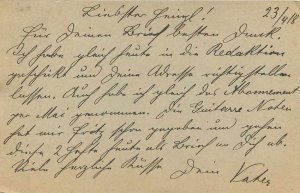 Liebster Heinzl! 23/4/18
Für Deinen Brief besten Dank.
Ich habe gleich heute in die Redaktion
geschickt um Deine Adresse richtig stellen
lassen. Auch habe ich gleich das Abonnement
per Mai genommen. Die Guitare Noten
hat mir Fritz schon gegeben und gehen
diese 2 Hefte heute als Brief an Dich ab.
Viele herzliche Küsse Dein Vater